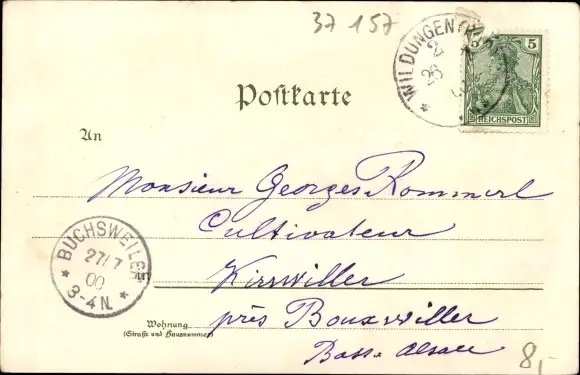 37 157
WILDUNGEN
2
26
5 5
REICHSPOST
Postkarte
An
Monsieur Georges Rommerl
Cultivateur
Kirrwiller
près Bouxwiller
Bass-Alsace
BUCHSWEILER
27/7
00
3-4 N.
in
Wohnung
(Straße und Hausnummer)
8,-